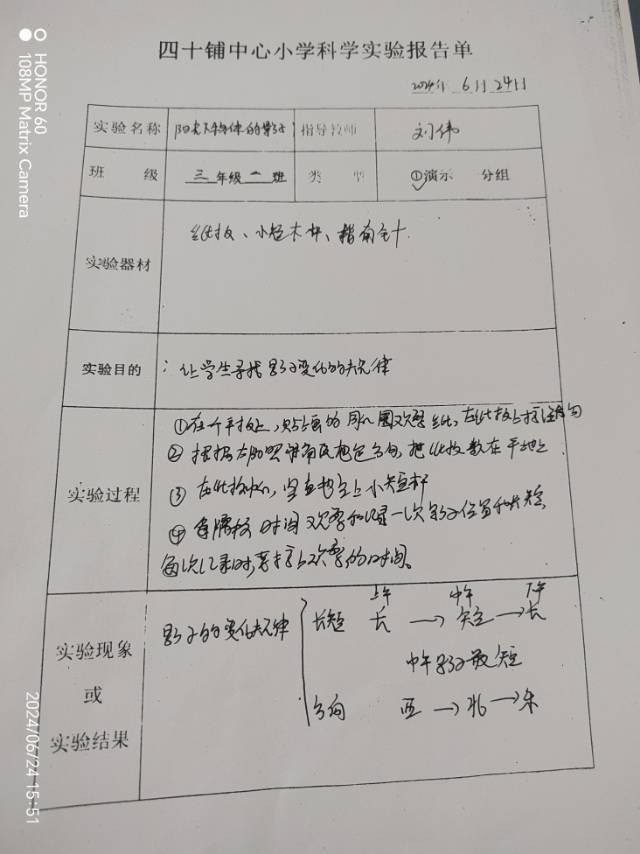 HONOR 60
108MP Matrix Camera
四十铺中心小学科学实验报告单
2024年 6月24日
实验名称 阳光下物体的影子 指导教师 刘伟
班 级 三年级一班 类 型 ①演示 分组
实验器材 纸板、小短木杆、指南针.
实验目的 :让学生寻找影子变化的规律
①在一个平板上,贴上画的同心圆观察纸,在纸板上标注方向
②根据
把纸板放在平地上
实验过程 ③在纸板中心,竖直 上小短杆
④每隔 时间观察和记录一次影子位置和长短,
每次记录时,要标上观察的时间。
上午 中午 下午
实验现象 影子的变化规律 长短 长→短→长
或 中午影子最短
实验结果 方向 西→北→东
2024/06/24 15:51